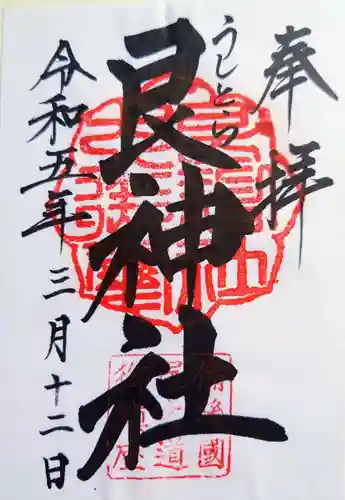 奉拝
うしとら
艮神社
令和五年 三月十二日